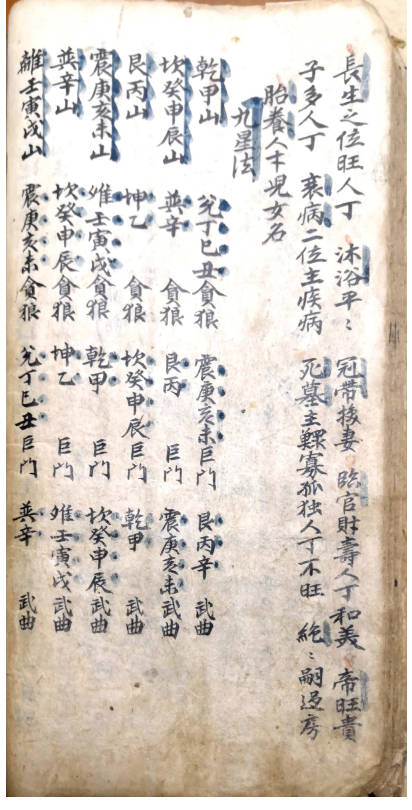 長生之位旺人丁　沐浴平〻　冠帶接妻　臨官財壽人丁和美　帝旺貴
子多人丁　衰病二位主疾病　死墓主鰥寡孤独人丁不旺　絶〻嗣過房
胎養人丁児女名
九星法
乾甲山　兊丁巳丑貪狼　震庚亥未巨门　艮丙辛　武曲
坎癸申辰山　㢲辛　貪狼　艮丙　巨门　震庚亥未武曲
艮丙山　坤乙　貪狼　坎癸申辰巨门　乾甲　武曲
震庚亥未山　離壬寅戌貪狼　乾甲　巨门　坎癸申辰武曲
㢲辛山　坎癸申辰貪狼　坤乙　巨门　離壬寅戌武曲
離壬寅戌山　震庚亥未貪狼　兊丁巳丑巨门　㢲辛　武曲